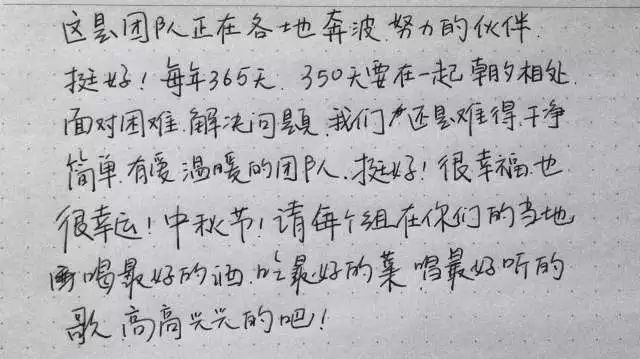 这是团队正在各地奔波努力的伙伴.
挺好！每年365天.350天要在一起朝夕相处.
面对困难.解决问题.我们还是难得.干净
简单.有爱温暖的团队.挺好！很幸福.也
很幸运！中秋节！请每个组在你们的当地
喝最好的酒.吃最好的菜唱最好听的
歌高高兴兴的吧！